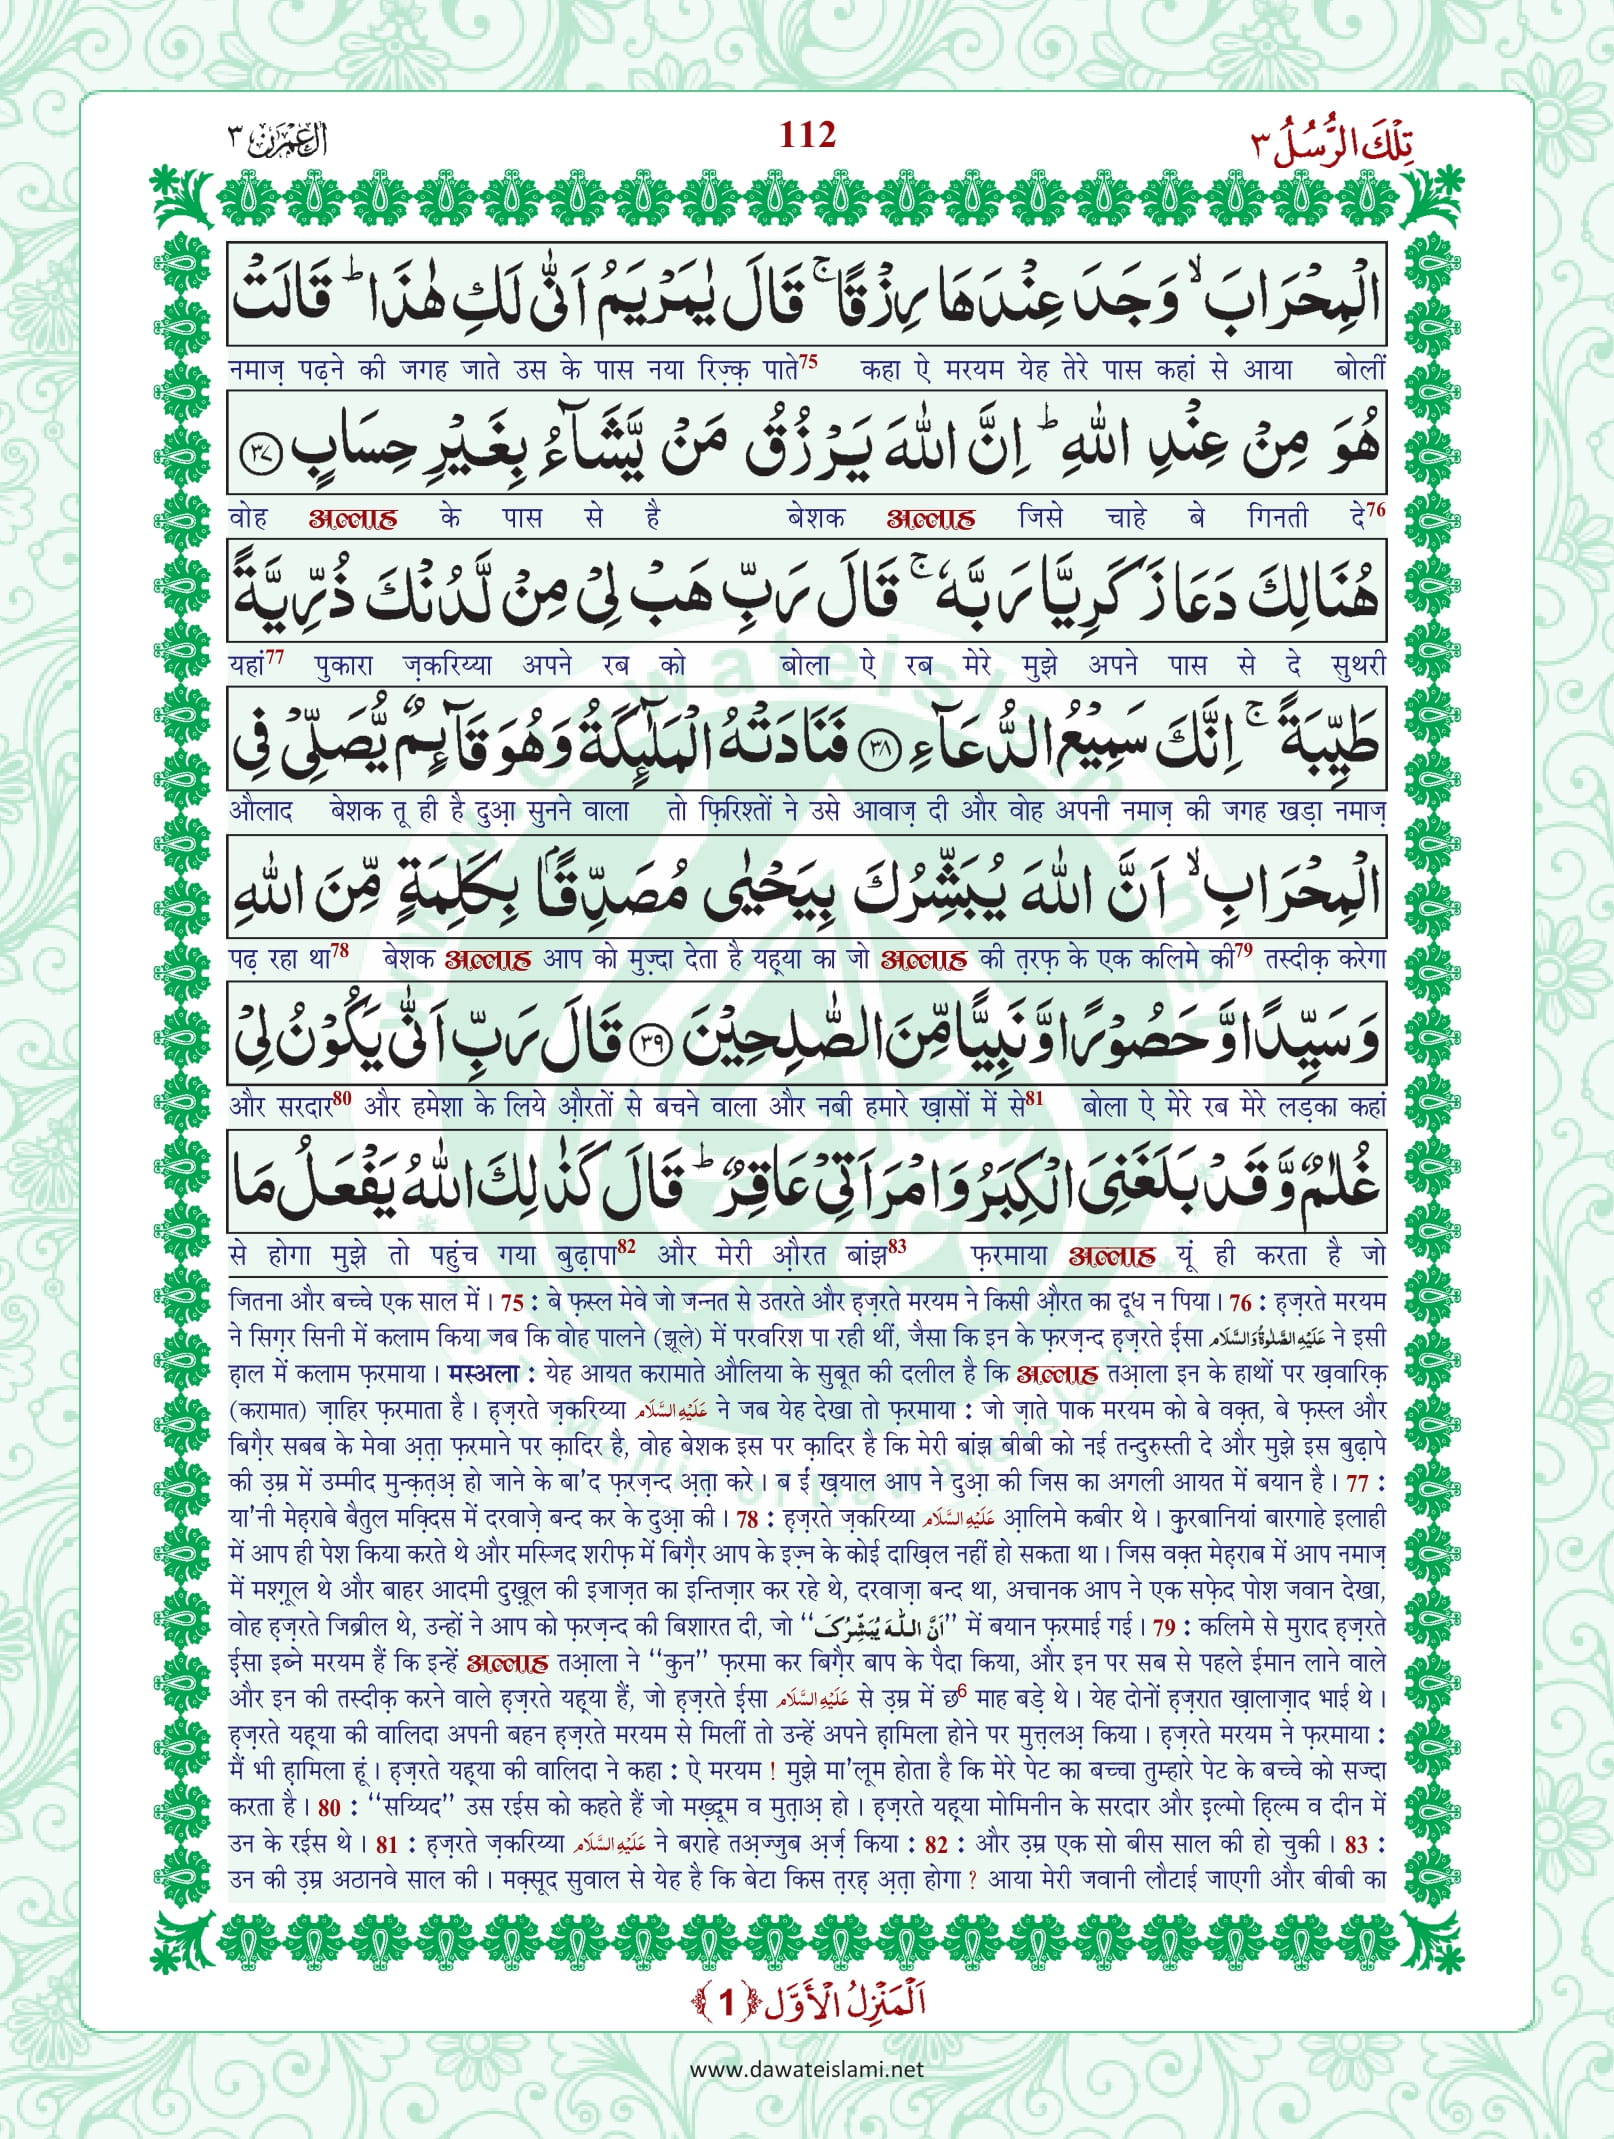 اٰل عمرٰن ٣
112
تِلْكَ الرُّسُلُ ٣
الْمِحْرَابَ ۙ وَجَدَ عِنْدَهَا رِزْقًا ۚ قَالَ یٰمَرْیَمُ اَنّٰى لَكِ هٰذَا ؕ قَالَتْ
नमाज़ पढ़ने की जगह जाते उस के पास नया रिज़्क़ पाते75 कहा ऐ मरयम येह तेरे पास कहां से आया बोलीं
هُوَ مِنْ عِنْدِ اللّٰهِ ؕ اِنَّ اللّٰهَ یَرْزُقُ مَنْ یَّشَآءُ بِغَیْرِ حِسَابٍ ﴿٣٧﴾
वोह अल्लाह के पास से है बेशक अल्लाह जिसे चाहे बे गिनती दे76
هُنَالِكَ دَعَا زَكَرِیَّا رَبَّهٗ ۚ قَالَ رَبِّ هَبْ لِیْ مِنْ لَّدُنْكَ ذُرِّیَّةً
यहां77 पुकारा ज़करिय्या अपने रब को बोला ऐ रब मेरे मुझे अपने पास से दे सुथरी
طَیِّبَةً ۚ اِنَّكَ سَمِیْعُ الدُّعَآءِ ﴿٣٨﴾ فَنَادَتْهُ الْمَلٰٓىِٕكَةُ وَهُوَ قَآىِٕمٌ یُّصَلِّیْ فِی
औलाद बेशक तू ही है दुआ़ सुनने वाला तो फ़िरिश्तों ने उसे आवाज़ दी और वोह अपनी नमाज़ की जगह खड़ा नमाज़
الْمِحْرَابِ ۙ اَنَّ اللّٰهَ یُبَشِّرُكَ بِیَحْیٰى مُصَدِّقًۢا بِكَلِمَةٍ مِّنَ اللّٰهِ
पढ़ रहा था78 बेशक अल्लाह आप को मुज़्दा देता है यह़्या का जो अल्लाह की त़रफ़ के एक कलिमे की79 तस्दीक़ करेगा
وَ سَیِّدًا وَّ حَصُوْرًا وَّ نَبِیًّا مِّنَ الصّٰلِحِیْنَ ﴿٣٩﴾ قَالَ رَبِّ اَنّٰى یَكُوْنُ لِیْ
और सरदार80 और हमेशा के लिये औ़रतों से बचने वाला और नबी हमारे ख़ासों में से81 बोला ऐ मेरे रब मेरे लड़का कहां
غُلٰمٌ وَّ قَدْ بَلَغَنِیَ الْكِبَرُ وَ امْرَاَتِیْ عَاقِرٌ ؕ قَالَ كَذٰلِكَ اللّٰهُ یَفْعَلُ مَا
से होगा मुझे तो पहुंच गया बुढ़ापा82 और मेरी औ़रत बांझ83 फ़रमाया अल्लाह यूं ही करता है जो
जितना और बच्चे एक साल में। 75 : बे फ़स्ल मेवे जो जन्नत से उतरते और ह़ज़रते मरयम ने किसी औ़रत का दूध न पिया। 76 : ह़ज़रते मरयम
ने सिग़र सिनी में कलाम किया जब कि वोह पालने (झूले) में परवरिश पा रही थीं, जैसा कि इन के फ़रज़न्द ह़ज़रते ईसा عَلَیْهِ الصَّلٰوةُ وَالسَّلَام ने इसी
ह़ाल में कलाम फ़रमाया। मस्अला : येह आयत करामाते औलिया के सुबूत की दलील है कि अल्लाह तआ़ला इन के हाथों पर ख़वारिक़
(करामात) ज़ाहिर फ़रमाता है। ह़ज़रते ज़करिय्या عَلَیْهِ السَّلَام ने जब येह देखा तो फ़रमाया : जो ज़ाते पाक मरयम को बे वक़्त, बे फ़स्ल और
बिग़ैर सबब के मेवा अ़त़ा फ़रमाने पर क़ादिर है, वोह बेशक इस पर क़ादिर है कि मेरी बांझ बीबी को नई तन्दुरुस्ती दे और मुझे इस बुढ़ापे
की उ़म्र में उम्मीद मुन्क़त़अ़ हो जाने के बा'द फ़रज़न्द अ़त़ा करे। ब ईं ख़याल आप ने दुआ़ की जिस का अगली आयत में बयान है। 77 :
या'नी मेह़राबे बैतुल मक़्दिस में दरवाज़े बन्द कर के दुआ़ की। 78 : ह़ज़रते ज़करिय्या عَلَیْهِ السَّلَام आ़लिमे कबीर थे। क़ुरबानियां बारगाहे इलाही
में आप ही पेश किया करते थे और मस्जिद शरीफ़ में बिग़ैर आप के इज़्न के कोई दाख़िल नहीं हो सकता था। जिस वक़्त मेह़राब में आप नमाज़
में मश्ग़ूल थे और बाहर आदमी दुख़ूल की इजाज़त का इन्तिज़ार कर रहे थे, दरवाज़ा बन्द था, अचानक आप ने एक सफ़ेद पोश जवान देखा,
वोह ह़ज़रते जिब्रील थे, उन्हों ने आप को फ़रज़न्द की बिशारत दी, जो ‘‘اَنَّ اللّٰهَ یُبَشِّرُكَ’’ में बयान फ़रमाई गई। 79 : कलिमे से मुराद ह़ज़रते
ईसा इब्ने मरयम हैं कि इन्हें अल्लाह तआ़ला ने ‘‘कुन’’ फ़रमा कर बिग़ैर बाप के पैदा किया, और इन पर सब से पहले ईमान लाने वाले
और इन की तस्दीक़ करने वाले ह़ज़रते यह़्या हैं, जो ह़ज़रते ईसा عَلَیْهِ السَّلَام से उ़म्र में छ6 माह बड़े थे। येह दोनों ह़ज़रात ख़ालाज़ाद भाई थे।
ह़ज़रते यह़्या की वालिदा अपनी बहन ह़ज़रते मरयम से मिलीं तो उन्हें अपने ह़ामिला होने पर मुत्त़लअ़ किया। ह़ज़रते मरयम ने फ़रमाया :
मैं भी ह़ामिला हूं। ह़ज़रते यह़्या की वालिदा ने कहा : ऐ मरयम ! मुझे मा'लूम होता है कि मेरे पेट का बच्चा तुम्हारे पेट के बच्चे को सज्दा
करता है। 80 : ‘‘सय्यिद’’ उस रईस को कहते हैं जो मख़्दूम व मुत़ाअ़ हो। ह़ज़रते यह़्या मोमिनीन के सरदार और इ़ल्मो ह़िल्म व दीन में
उन के रईस थे। 81 : ह़ज़रते ज़करिय्या عَلَیْهِ السَّلَام ने बराहे तअ़ज्जुब अ़र्ज़ किया : 82 : और उ़म्र एक सो बीस साल की हो चुकी। 83 :
उन की उ़म्र अठानवे साल की। मक़्सूद सुवाल से येह है कि बेटा किस त़रह़ अ़त़ा होगा ? आया मेरी जवानी लौटाई जाएगी और बीबी का
اَلْمَنْزِلُ الْاَوَّل ﴿1﴾
www.dawateislami.net